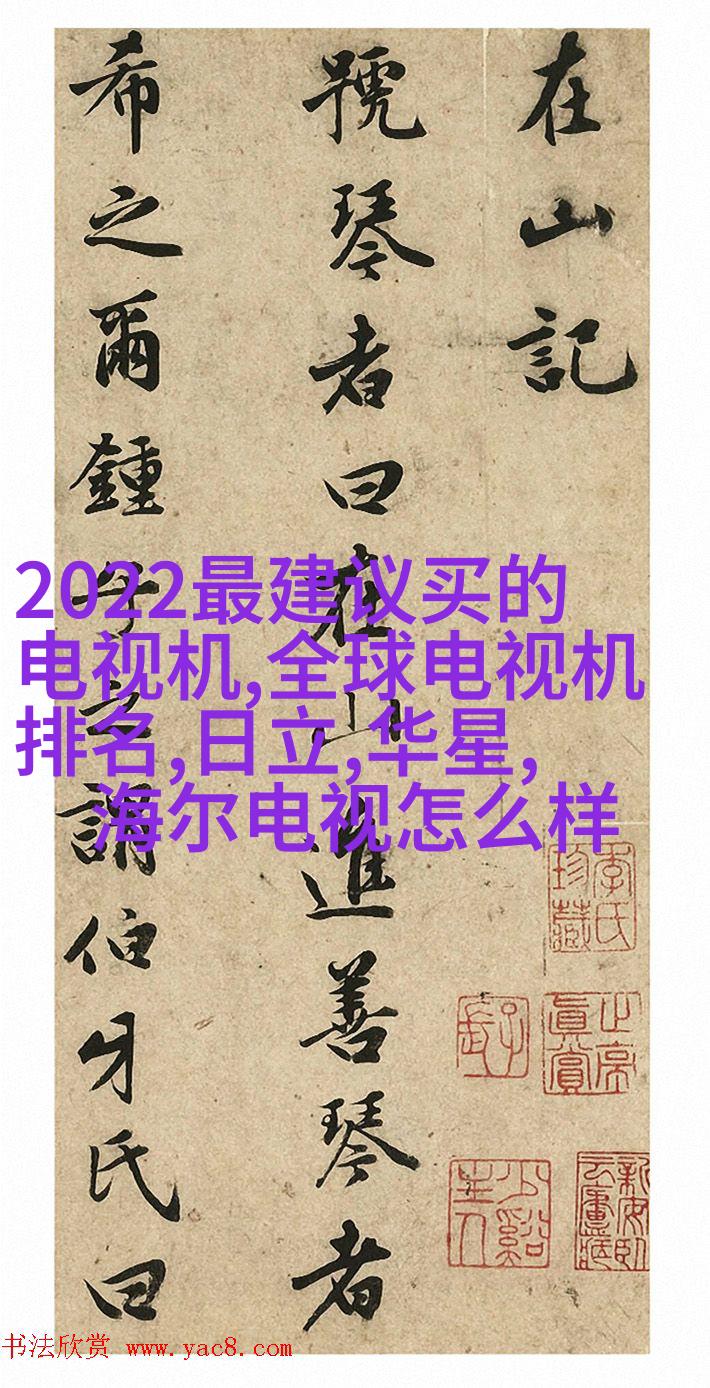 在山記
號琴者曰在山進善琴者
希之爾鍾子之謂伯牙氏曰
2022最建议买的
电视机,全球电视机
排名,日立,华星,
海尔电视怎么样
季氏珍藏
子京真賞
书法欣赏 www.yac8.com